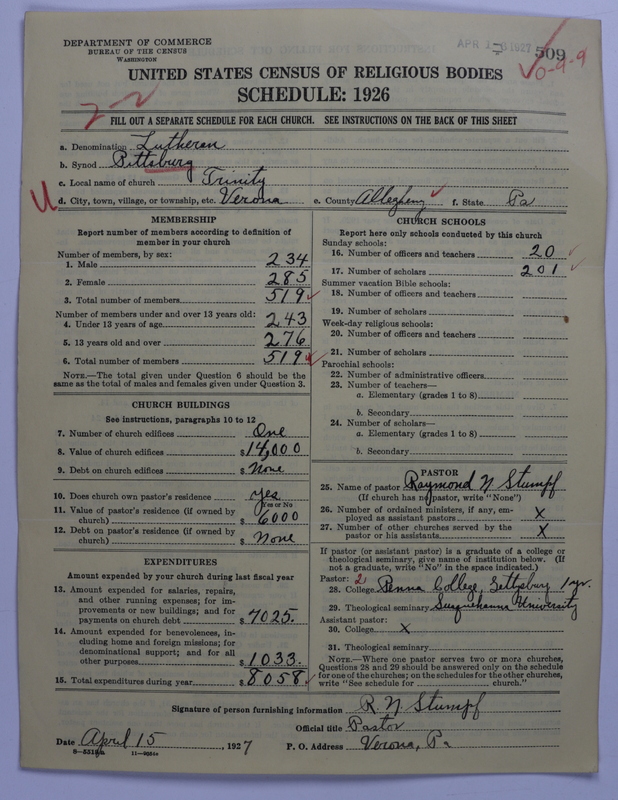 DEPARTMENT OF COMMERCE
BUREAU OF THE CENSUS
WASHINGTON
APR 1 1927
509
0-9-9
UNITED STATES CENSUS OF RELIGIOUS BODIES
SCHEDULE: 1926
2-2
FILL OUT A SEPARATE SCHEDULE FOR EACH CHURCH. SEE INSTRUCTIONS ON THE BACK OF THIS SHEET
a. Denomination Lutheran
b. Synod Pittsburg
c. Local name of church Trinity
d. City, town, village, or township, etc. Verona e. County Allegheny f. State Pa
MEMBERSHIP
Report number of members according to definition of
member in your church
Number of members, by sex:
1. Male 234
2. Female 285
3. Total number of members 519
Number of members under and over 13 years old:
4. Under 13 years of age 243
5. 13 years old and over 276
6. Total number of members 519
NOTE.—The total given under Question 6 should be the
same as the total of males and females given under Question 3.
CHURCH BUILDINGS
See instructions, paragraphs 10 to 12
7. Number of church edifices One
8. Value of church edifices $ 14,000
9. Debt on church edifices $ None
10. Does church own pastor's residence yes
(Yes or No
11. Value of pastor's residence (if owned by
church) $ 6000
12. Debt on pastor's residence (if owned by
church) $ None
EXPENDITURES
Amount expended by your church during last fiscal year
13. Amount expended for salaries, repairs,
and other running expenses; for im-
provements or new buildings; and for
payments on church debt $ 7025.
14. Amount expended for benevolences, in-
cluding home and foreign missions; for
denominational support; and for all
other purposes $ 1033.
15. Total expenditures during year $ 8058
CHURCH SCHOOLS
Report here only schools conducted by this church
Sunday schools:
16. Number of officers and teachers 20
17. Number of scholars 201
Summer vacation Bible schools:
18. Number of officers and teachers
19. Number of scholars
Week-day religious schools:
20. Number of officers and teachers
21. Number of scholars
Parochial schools:
22. Number of administrative officers
23. Number of teachers—
a. Elementary (grades 1 to 8)
b. Secondary
24. Number of scholars—
a. Elementary (grades 1 to 8)
b. Secondary
PASTOR
25. Name of pastor Raymond N Stumpf
(If church has no pastor, write "None")
26. Number of ordained ministers, if any, em-
ployed as assistant pastors X
27. Number of other churches served by the
pastor or his assistants X
If pastor (or assistant pastor) is a graduate of a college or
theological seminary, give name of institution below. (If
not a graduate, write "No" in the space indicated.)
Pastor: 2
28. College Penna College, Gettysburg 1 yr.
29. Theological seminary Susquehanna University
Assistant pastor:
30. College X
31. Theological seminary
NOTE.—Where one pastor serves two or more churches,
Questions 28 and 29 should be answered only on the schedule
for one of the churches; on the schedules for the other churches,
write "See schedule for church."
Signature of person furnishing information R. N Stumpf
Official title Pastor
Date April 15, 1927 P. O. Address Verona, Pa